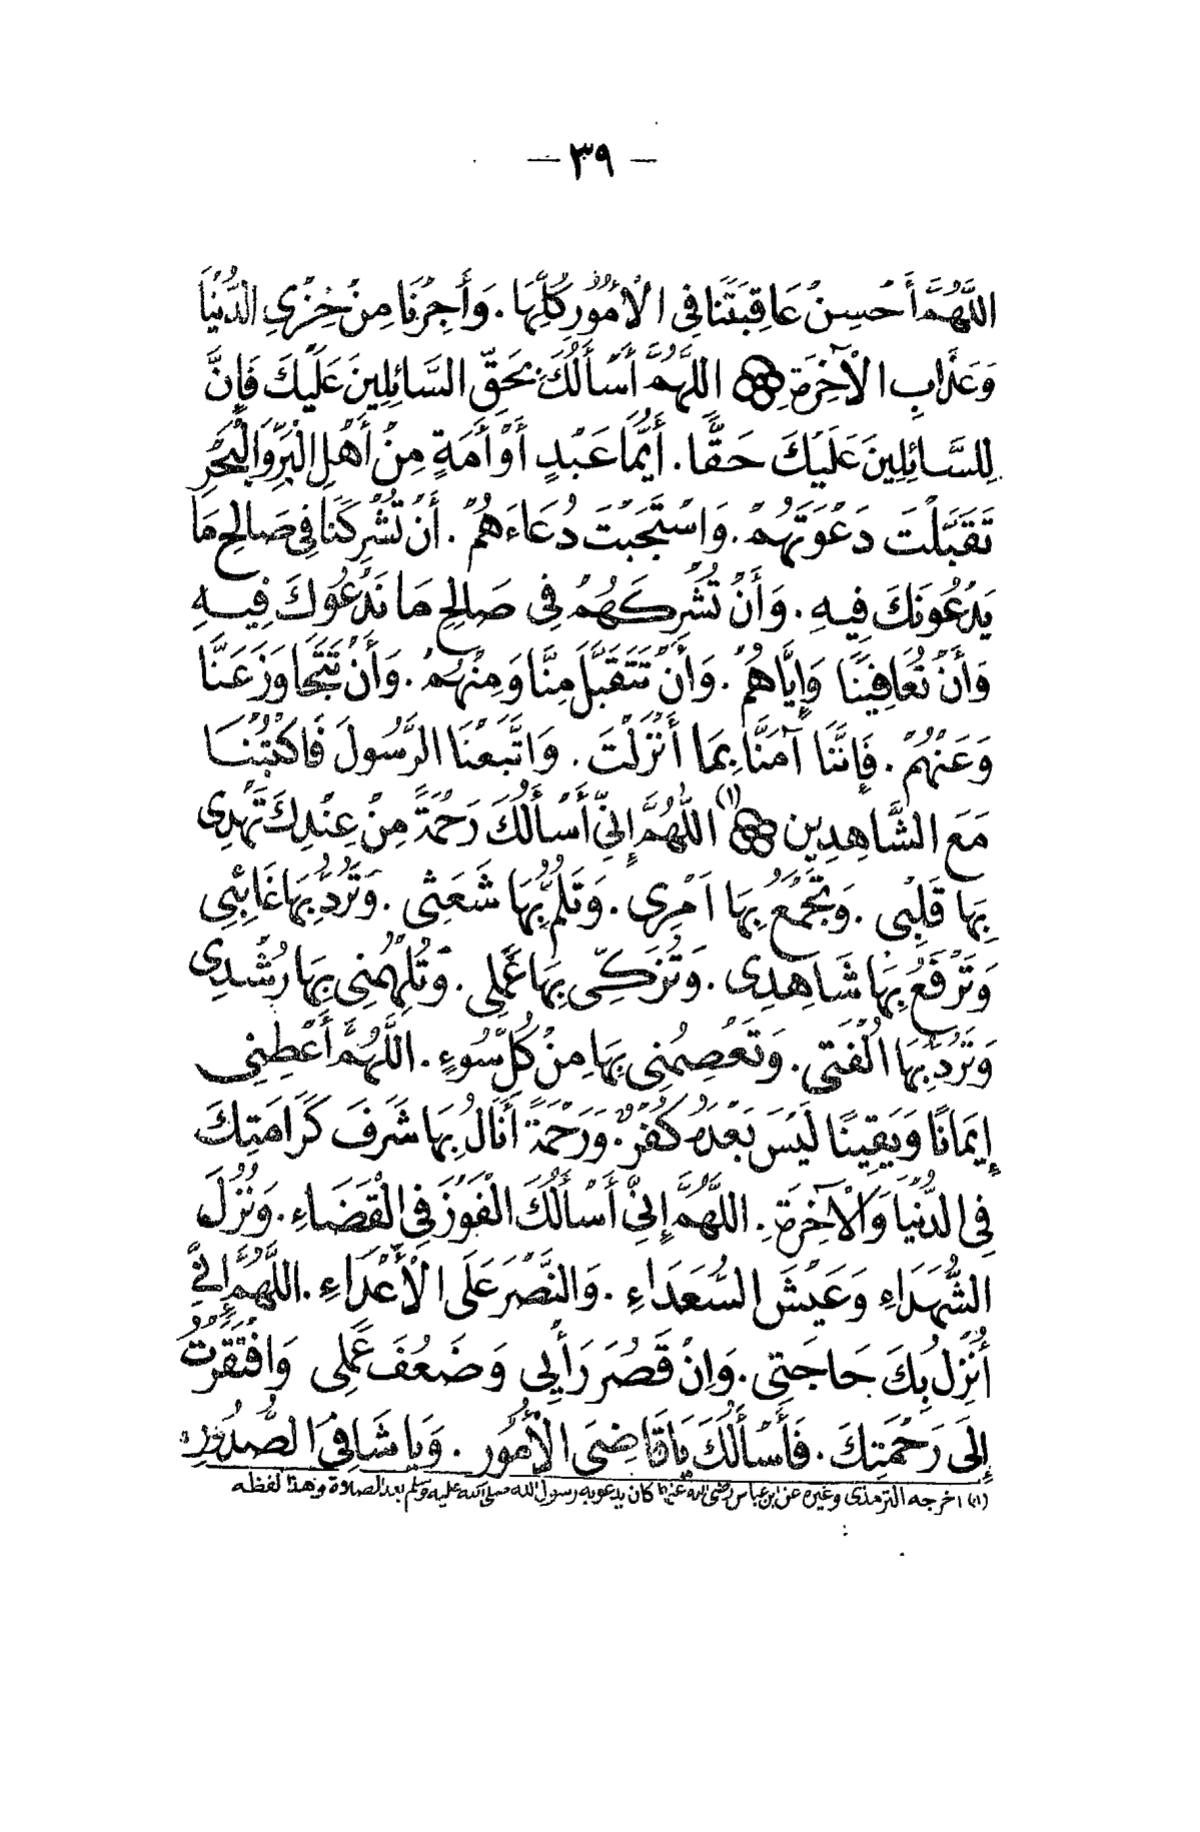 — ٣٩ —
اللَّهُمَّ أَحْسِنْ عَاقِبَتَنَا فِي الْأُمُورِ كُلِّهَا . وَأَجِرْنَا مِنْ خِزْيِ الدُّنْيَا
وَعَذَابِ الْآخِرَةِ اللَّهُمَّ أَسْأَلُكَ بِحَقِّ السَّائِلِينَ عَلَيْكَ فَإِنَّ
لِلسَّائِلِينَ عَلَيْكَ حَقًّا . أَيُّمَا عَبْدٍ أَوْ أَمَةٍ مِنْ أَهْلِ الْبَرِّ وَالْبَحْرِ
تَقَبَّلْتَ دَعْوَتَهُمْ . وَاسْتَجَبْتَ دُعَاءَهُمْ . أَنْ تُشْرِكَنَا فِي صَالِحِ مَا
يَدْعُونَكَ فِيهِ . وَأَنْ تُشْرِكَهُمْ فِي صَالِحِ مَا نَدْعُوكَ فِيهِ
وَأَنْ تُعَافِيَنَا وَإِيَّاهُمْ . وَأَنْ تَتَقَبَّلَ مِنَّا وَمِنْهُمْ . وَأَنْ تَتَجَاوَزَ عَنَّا
وَعَنْهُمْ . فَإِنَّنَا آمَنَّا بِمَا أَنْزَلْتَ . وَاتَّبَعْنَا الرَّسُولَ فَاكْتُبْنَا
مَعَ الشَّاهِدِينَ (١) اللَّهُمَّ إِنِّي أَسْأَلُكَ رَحْمَةً مِنْ عِنْدِكَ تَهْدِي
بِهَا قَلْبِي . وَتَجْمَعُ بِهَا أَمْرِي . وَتَلُمُّ بِهَا شَعَثِي . وَتَرُدُّ بِهَا غَائِبِي
وَتَرْفَعُ بِهَا شَاهِدِي . وَتُزَكِّي بِهَا عَمَلِي . وَتُلْهِمُنِي بِهَا رُشْدِي
وَتَرُدُّ بِهَا أُلْفَتِي . وَتَعْصِمُنِي بِهَا مِنْ كُلِّ سُوءٍ . اللَّهُمَّ أَعْطِنِي
إِيمَانًا وَيَقِينًا لَيْسَ بَعْدَهُ كُفْرٌ . وَرَحْمَةً أَنَالُ بِهَا شَرَفَ كَرَامَتِكَ
فِي الدُّنْيَا وَالْآخِرَةِ . اللَّهُمَّ إِنِّي أَسْأَلُكَ الْفَوْزَ فِي الْقَضَاءِ . وَنُزُلَ
الشُّهَدَاءِ وَعَيْشَ السُّعَدَاءِ . وَالنَّصْرَ عَلَى الْأَعْدَاءِ . اللَّهُمَّ إِنِّي
أُنْزِلُ بِكَ حَاجَتِي . وَإِنْ قَصُرَ رَأْيِي وَضَعُفَ عَمَلِي وَافْتَقَرْتُ
إِلَى رَحْمَتِكَ . فَأَسْأَلُكَ يَا قَاضِيَ الْأُمُورِ . وَيَا شَافِيَ الصُّدُورِ
(١) اخرجه الترمذى وغيره عن ابن عباس رضى الله عنهما كان يدعو به رسول الله صلى الله عليه وسلم بعد الصلاة وهذا لفظه